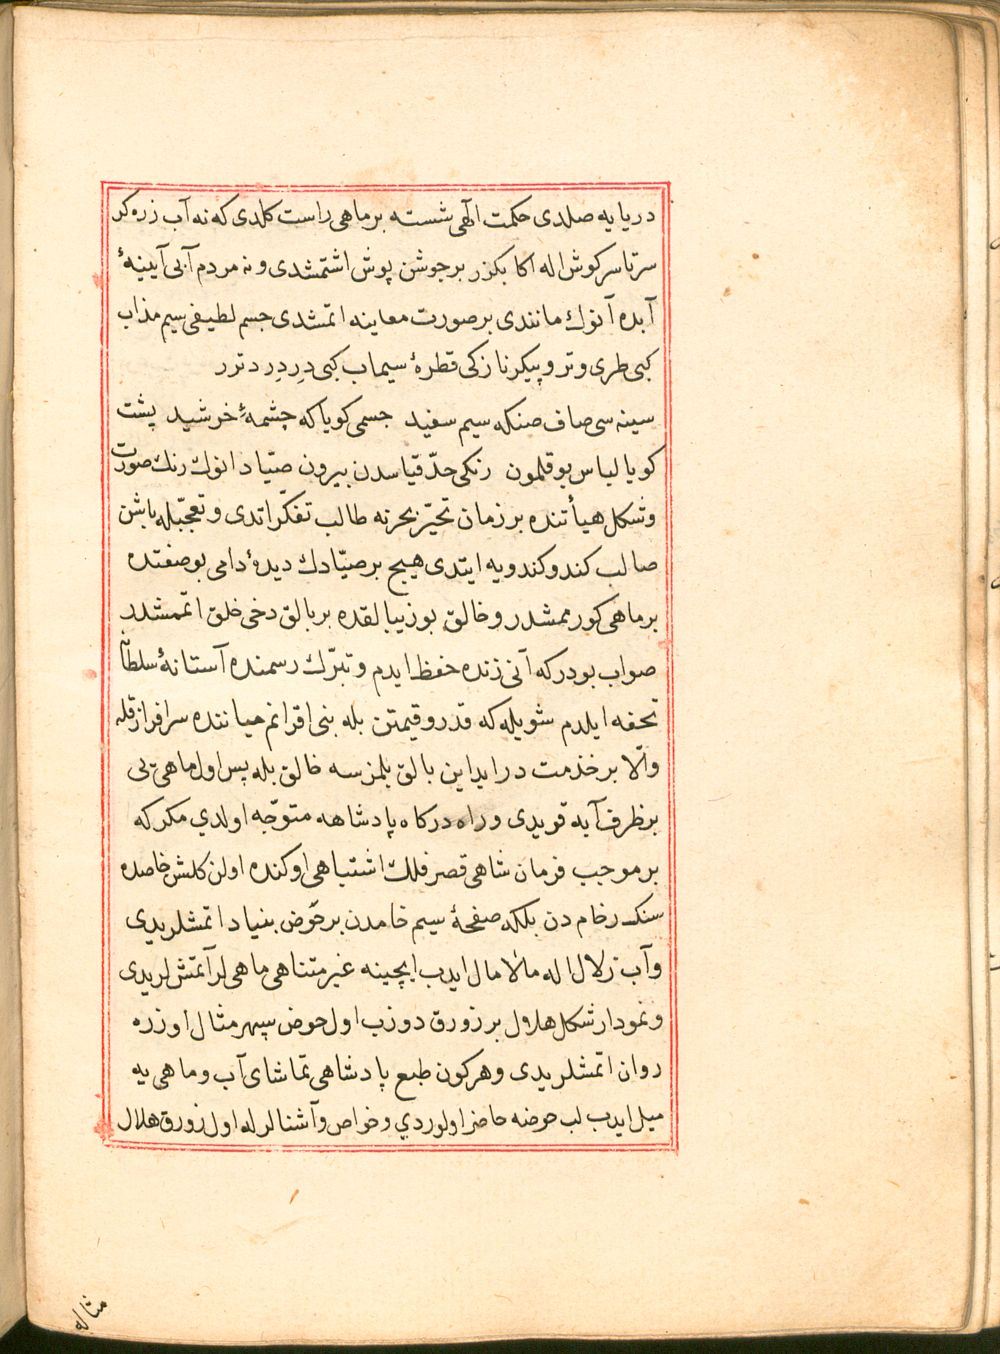 دریایه صلدی حکمت الهی شسته بر ماهی راست کلدی که نه آب زره کر
سرتاسر کوش اله اکا بکزر بر جوشن پوش اشتمشدی و نه مردم آبی آیینهٔ
آبده آنوك مانندی بر صورت معاینه اتمشدی جسم لطیفی سیم مذاب
کبی طری و تر و پیکر نازکی قطرهٔ سیماب کبی دِر دِر دتر
سینه سی صاف صنکه سیم سفید جسمی کویا که چشمهٔ خرشید پشت
کویا لباس بوقلمون رنکی حدّ قیاسدن بیرون صیّاد انوك رنك صورت
و شکل هیأتنده بر زمان تحیّر بحرنه طالب تفکّر اتدی و تعجّبله باشن
صالب کندو کندویه ایتدی هیچ بر صیّادك دیدهٔ دامی بو صفتده
بر ماهی کورممشدر و خالق بو زیبالقده بر بالق دخی خلق اتممشدر
صواب بودر که آنی زنده حفظ ایدم و تبرّك رسمنده آستانهٔ سلطانه
تحفه ایلدم شویله که قدر و قیمتن بله بنی اقرانم میاننده سرافراز قله
والّا بر خدمت در ایداین بالق بلمزسه خالق بله پس اول ماهی یی
بر ظرف آیه قویدی و راه درکاه پادشاهه متوجّه اولدي مکر که
بر موجب فرمان شاهی قصر فلك اشتباهی اوکنده اولن کلشن خاصده
سنك رخام دن بلکه صفحهٔ سیم خامدن بر حَوض بنیاد اتمشلریدی
و آب زلال اله مالامال ایدب ایچینه غیر متناهی ماهی لر آتمش لریدی
و نمودار شکل هلال بر زورق دوزب اول حوض سپهر مثال اوزره
روان اتمشلریدی و هر کون طبع پادشاهی تماشای آب و ماهی یه
میل ایدب لب حوضه حاضر اولوردي و خواص و آشنالر له اول زورق هلال
مثاله